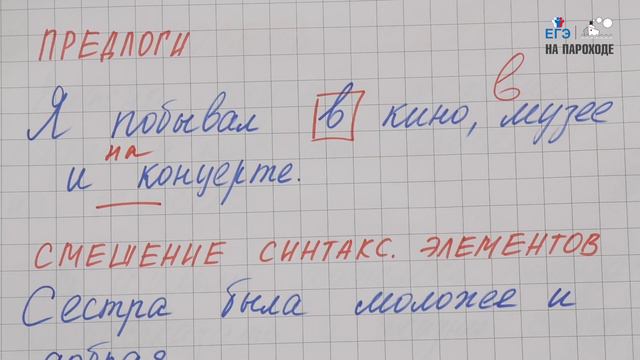 ЕГЭ
НА ПАРОХОДЕ
ПРЕДЛОГИ
в
Я побывал в кино, музее
на
и концерте.
СМЕШЕНИЕ СИНТАКС. ЭЛЕМЕНТОВ
Сестра была моложе и
добрая